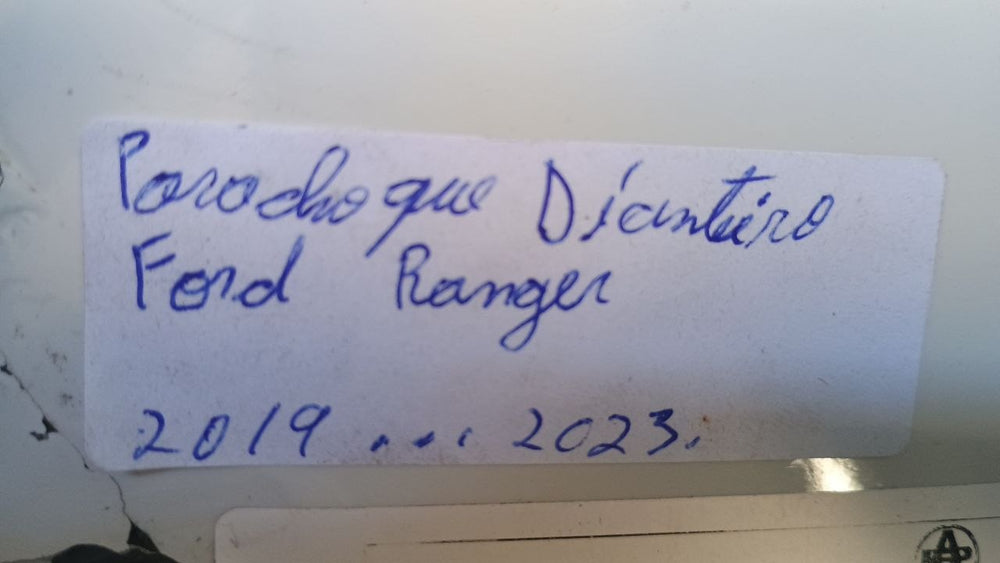 Parachoque Dianteiro
Ford Ranger
2019 ... 2023.